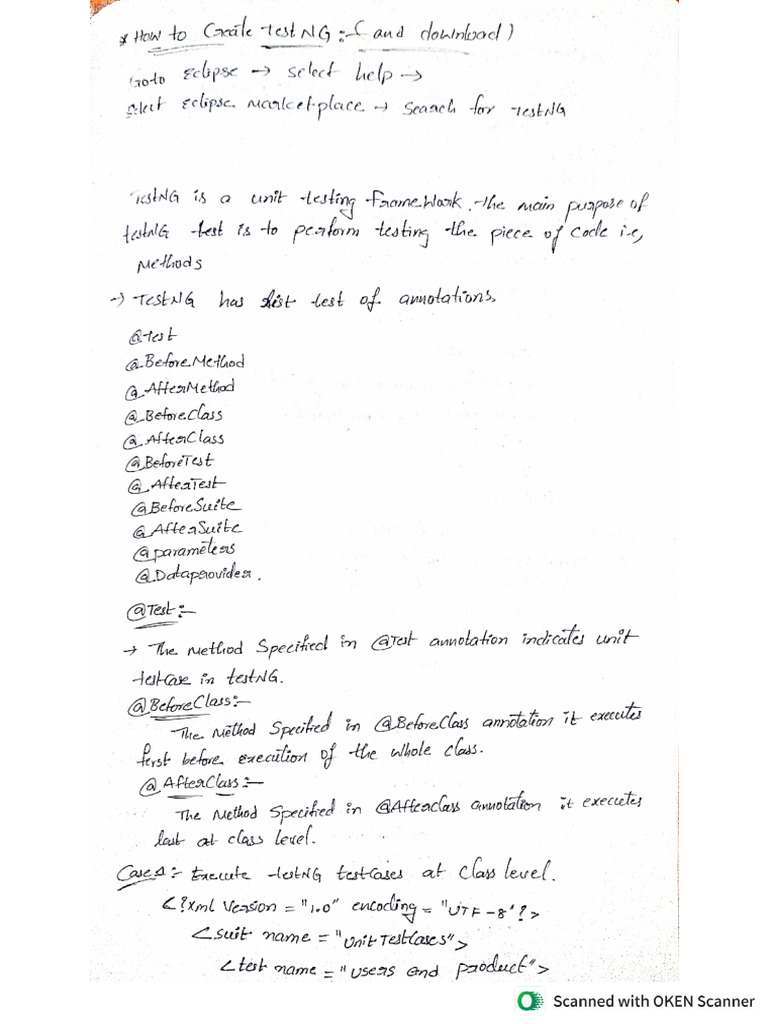 * How to Create TestNG :- ( and download )
Goto Eclipse → select help →
select Eclipse Marketplace → Search for TestNG
TestNG is a unit testing FrameWork. The main purpose of
testNG test is to perform testing the piece of code i.e,
Methods
→ TestNG has list test of annotations.
@test
@BeforeMethod
@AfterMethod
@BeforeClass
@AfterClass
@BeforeTest
@AfterTest
@BeforeSuite
@AfterSuite
@parameters
@Dataprovider.
@Test :-
→ The Method Specified in @Test annotation indicates unit
testcase in testNG.
@BeforeClass :-
The Method Specified in @BeforeClass annotation it executes
first before execution of the whole class.
@AfterClass :-
The Method Specified in @Afterclass annotation it executes
last at class level.
Case1 :- Execute testNG testcases at class level.
<?xml Version = "1.0" encoding = "UTF-8"?>
<suit name = "UnitTestCases">
<test name = "users and product">
Scanned with OKEN Scanner